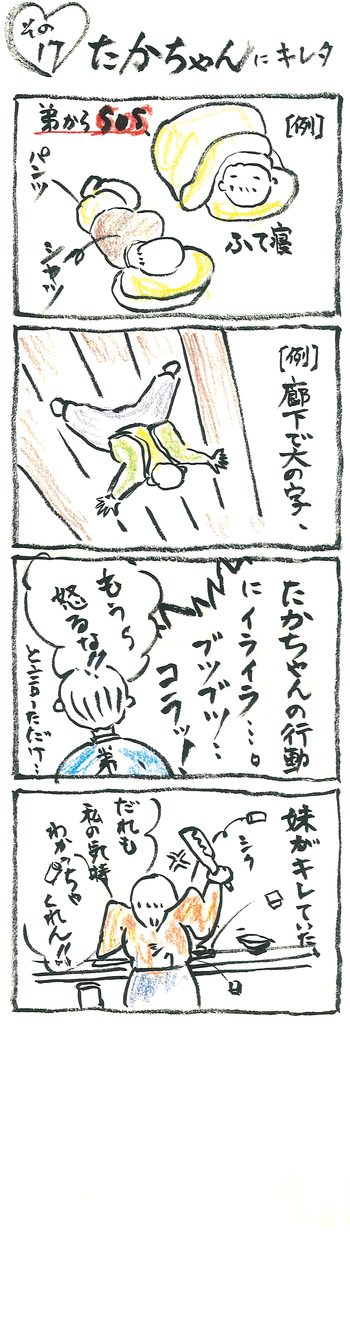 その
17
たかちゃんにキレタ
[例]
弟からSOS
ふて寝
パンツ
シャツ
[例]
廊下で大の字、
たかちゃんの行動
にイライラ…。
ブツブツ…
コラッ
もう〜
怒るな!!
弟
と言っただけ…
妹がキレていた。
シク
だれも
私の気持
わかっちゃ
くれん!!